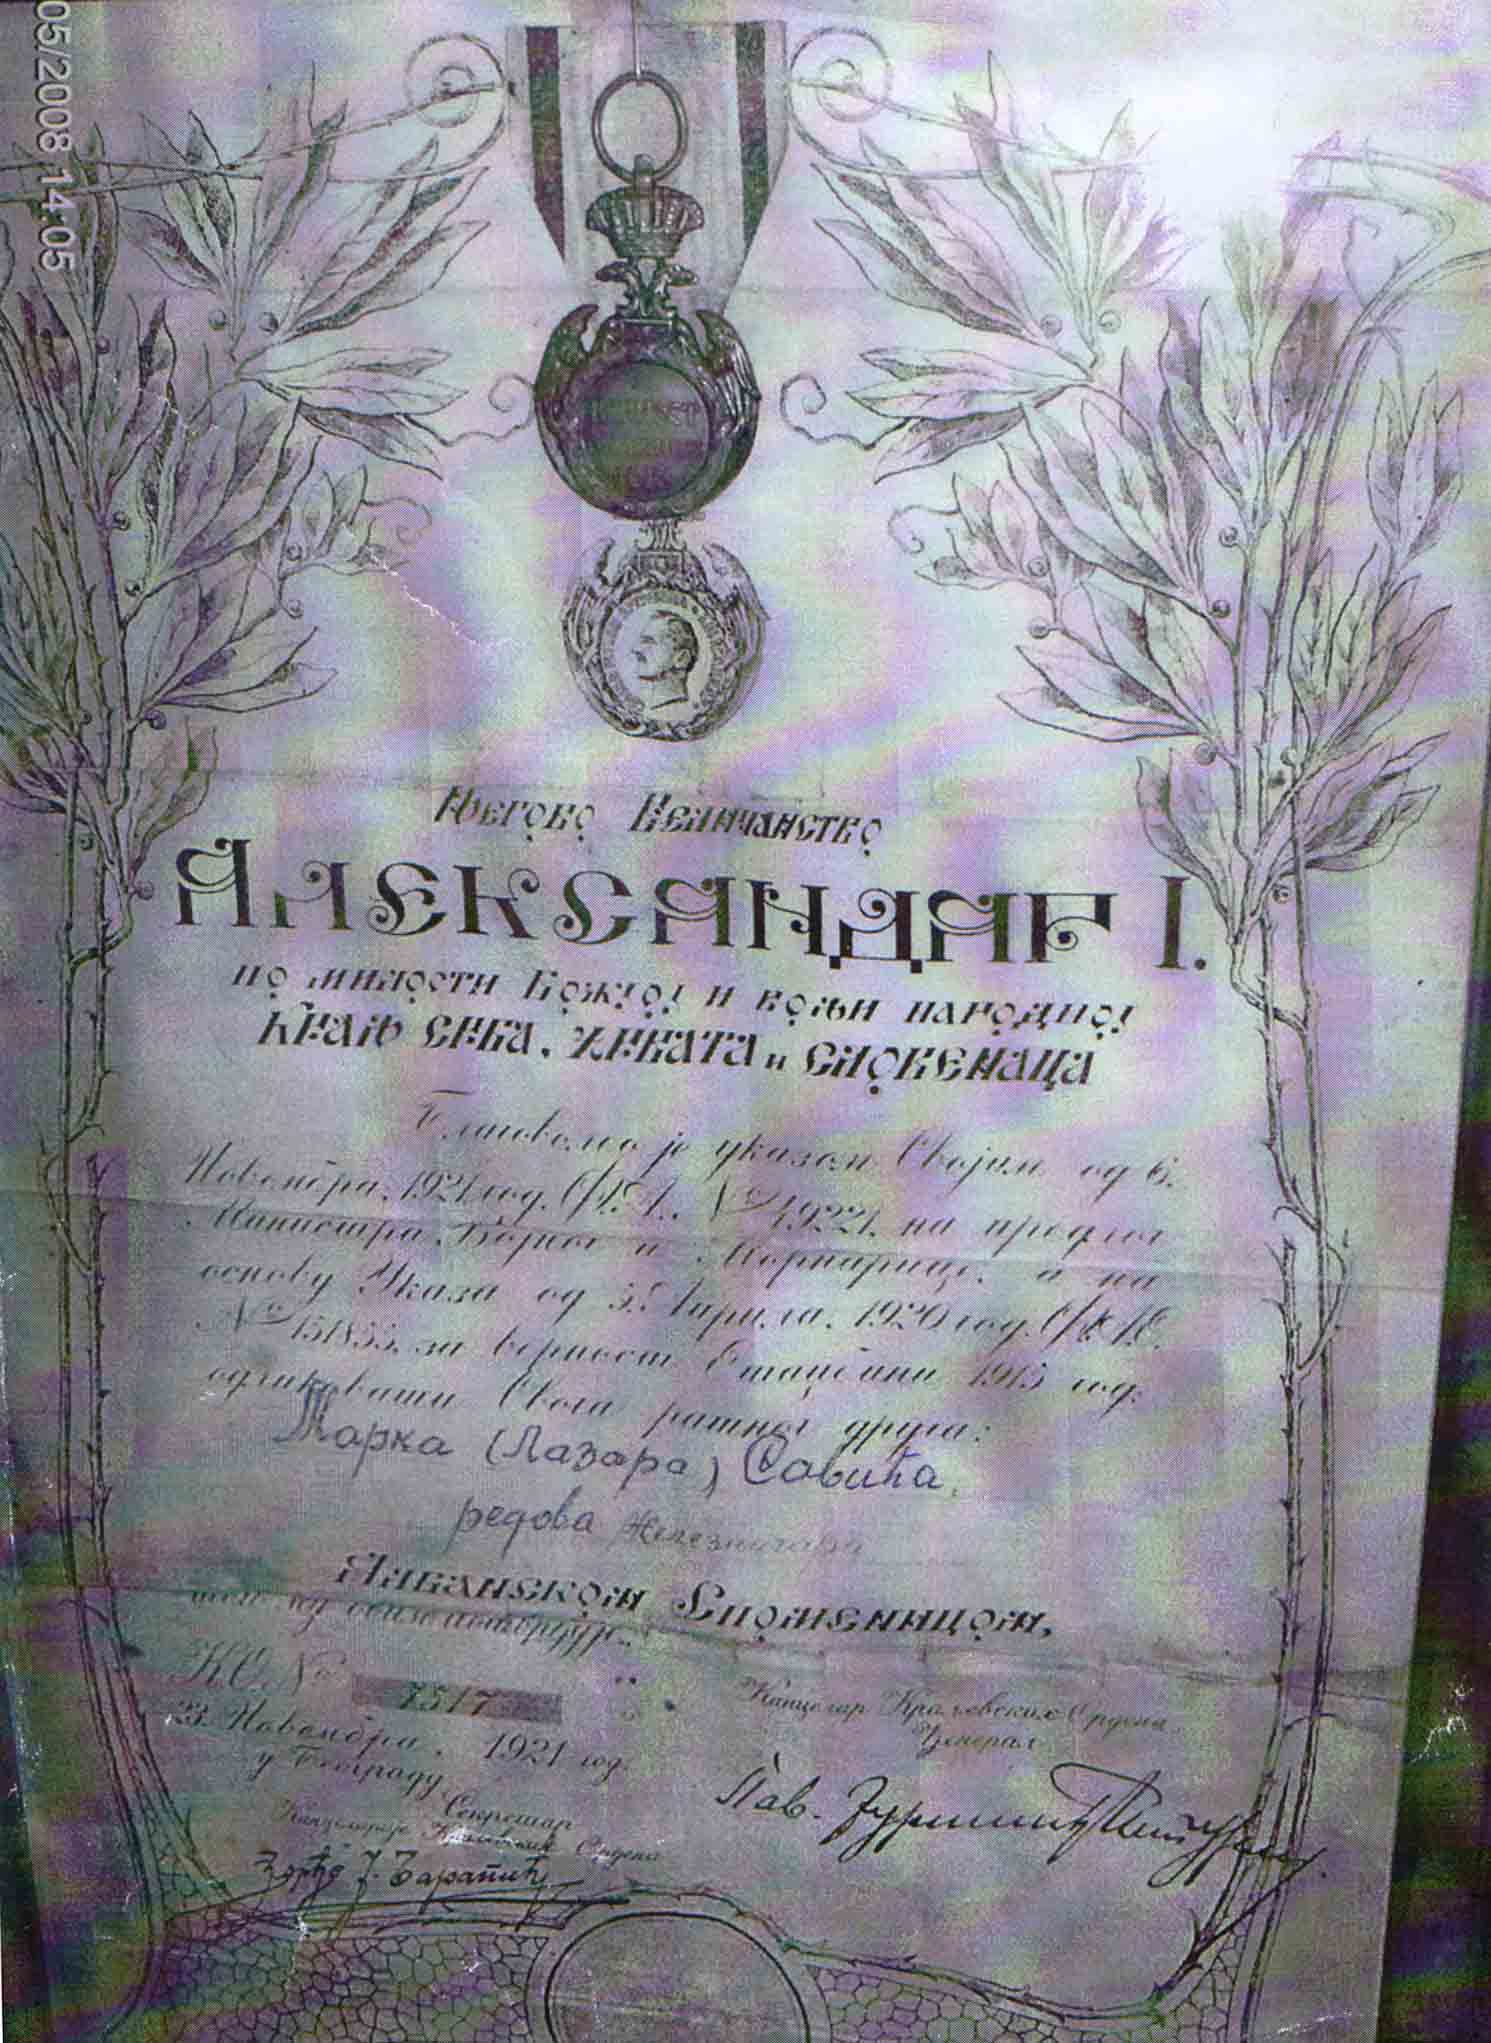 05/2008 14:05
Његово Величанство
АЛЕКСАНДАР I.
по милости Божјој и вољи народној
Краљ Срба, Хрвата и Словенаца
Благоволео је указом Својим од 6.
Новембра, 1921 год. № 4922, на предлог
Министра Војног и Морнарице, а на
основу Указа од 5. Априла, 1920 год.
№ 151855, за верност Отаџбини 1915 год.
одликовати Свога ратног друга:
Марка (Лазара) Савића,
редова железничара
Албанском Споменицом,
К.О. № 7517
Новембра, 1921 год.
у Београду
Канцелар Краљевских Ордена
Ђенерал
Пав. Јуришић
Секретар
Канцеларије Краљевских Ордена